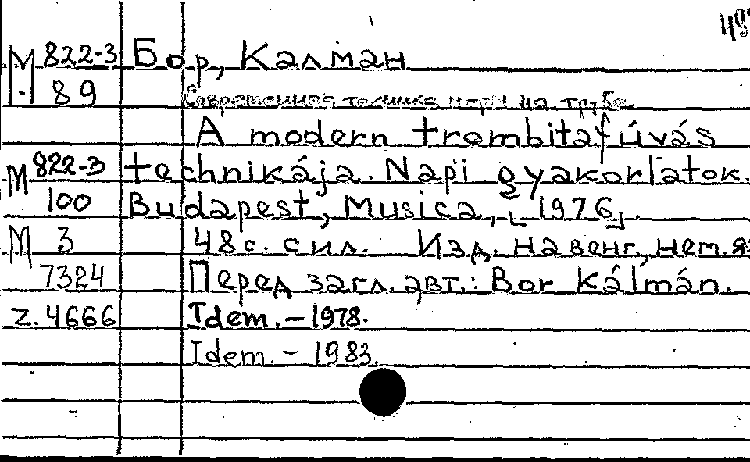 М 822-3 Бор, Калман
89 Современная техника игры на трубе.
A modern trombitafúvás
М 822-3 technikája. Napi gyakorlatok.
100 Budapest, Musica, [1976].
М 3 48с. с ил. Изд. на венг., нем. яз
7324 Перед загл. авт.: Bor Kálmán.
z. 4666 Idem. – 1978.
Idem. – 1983.